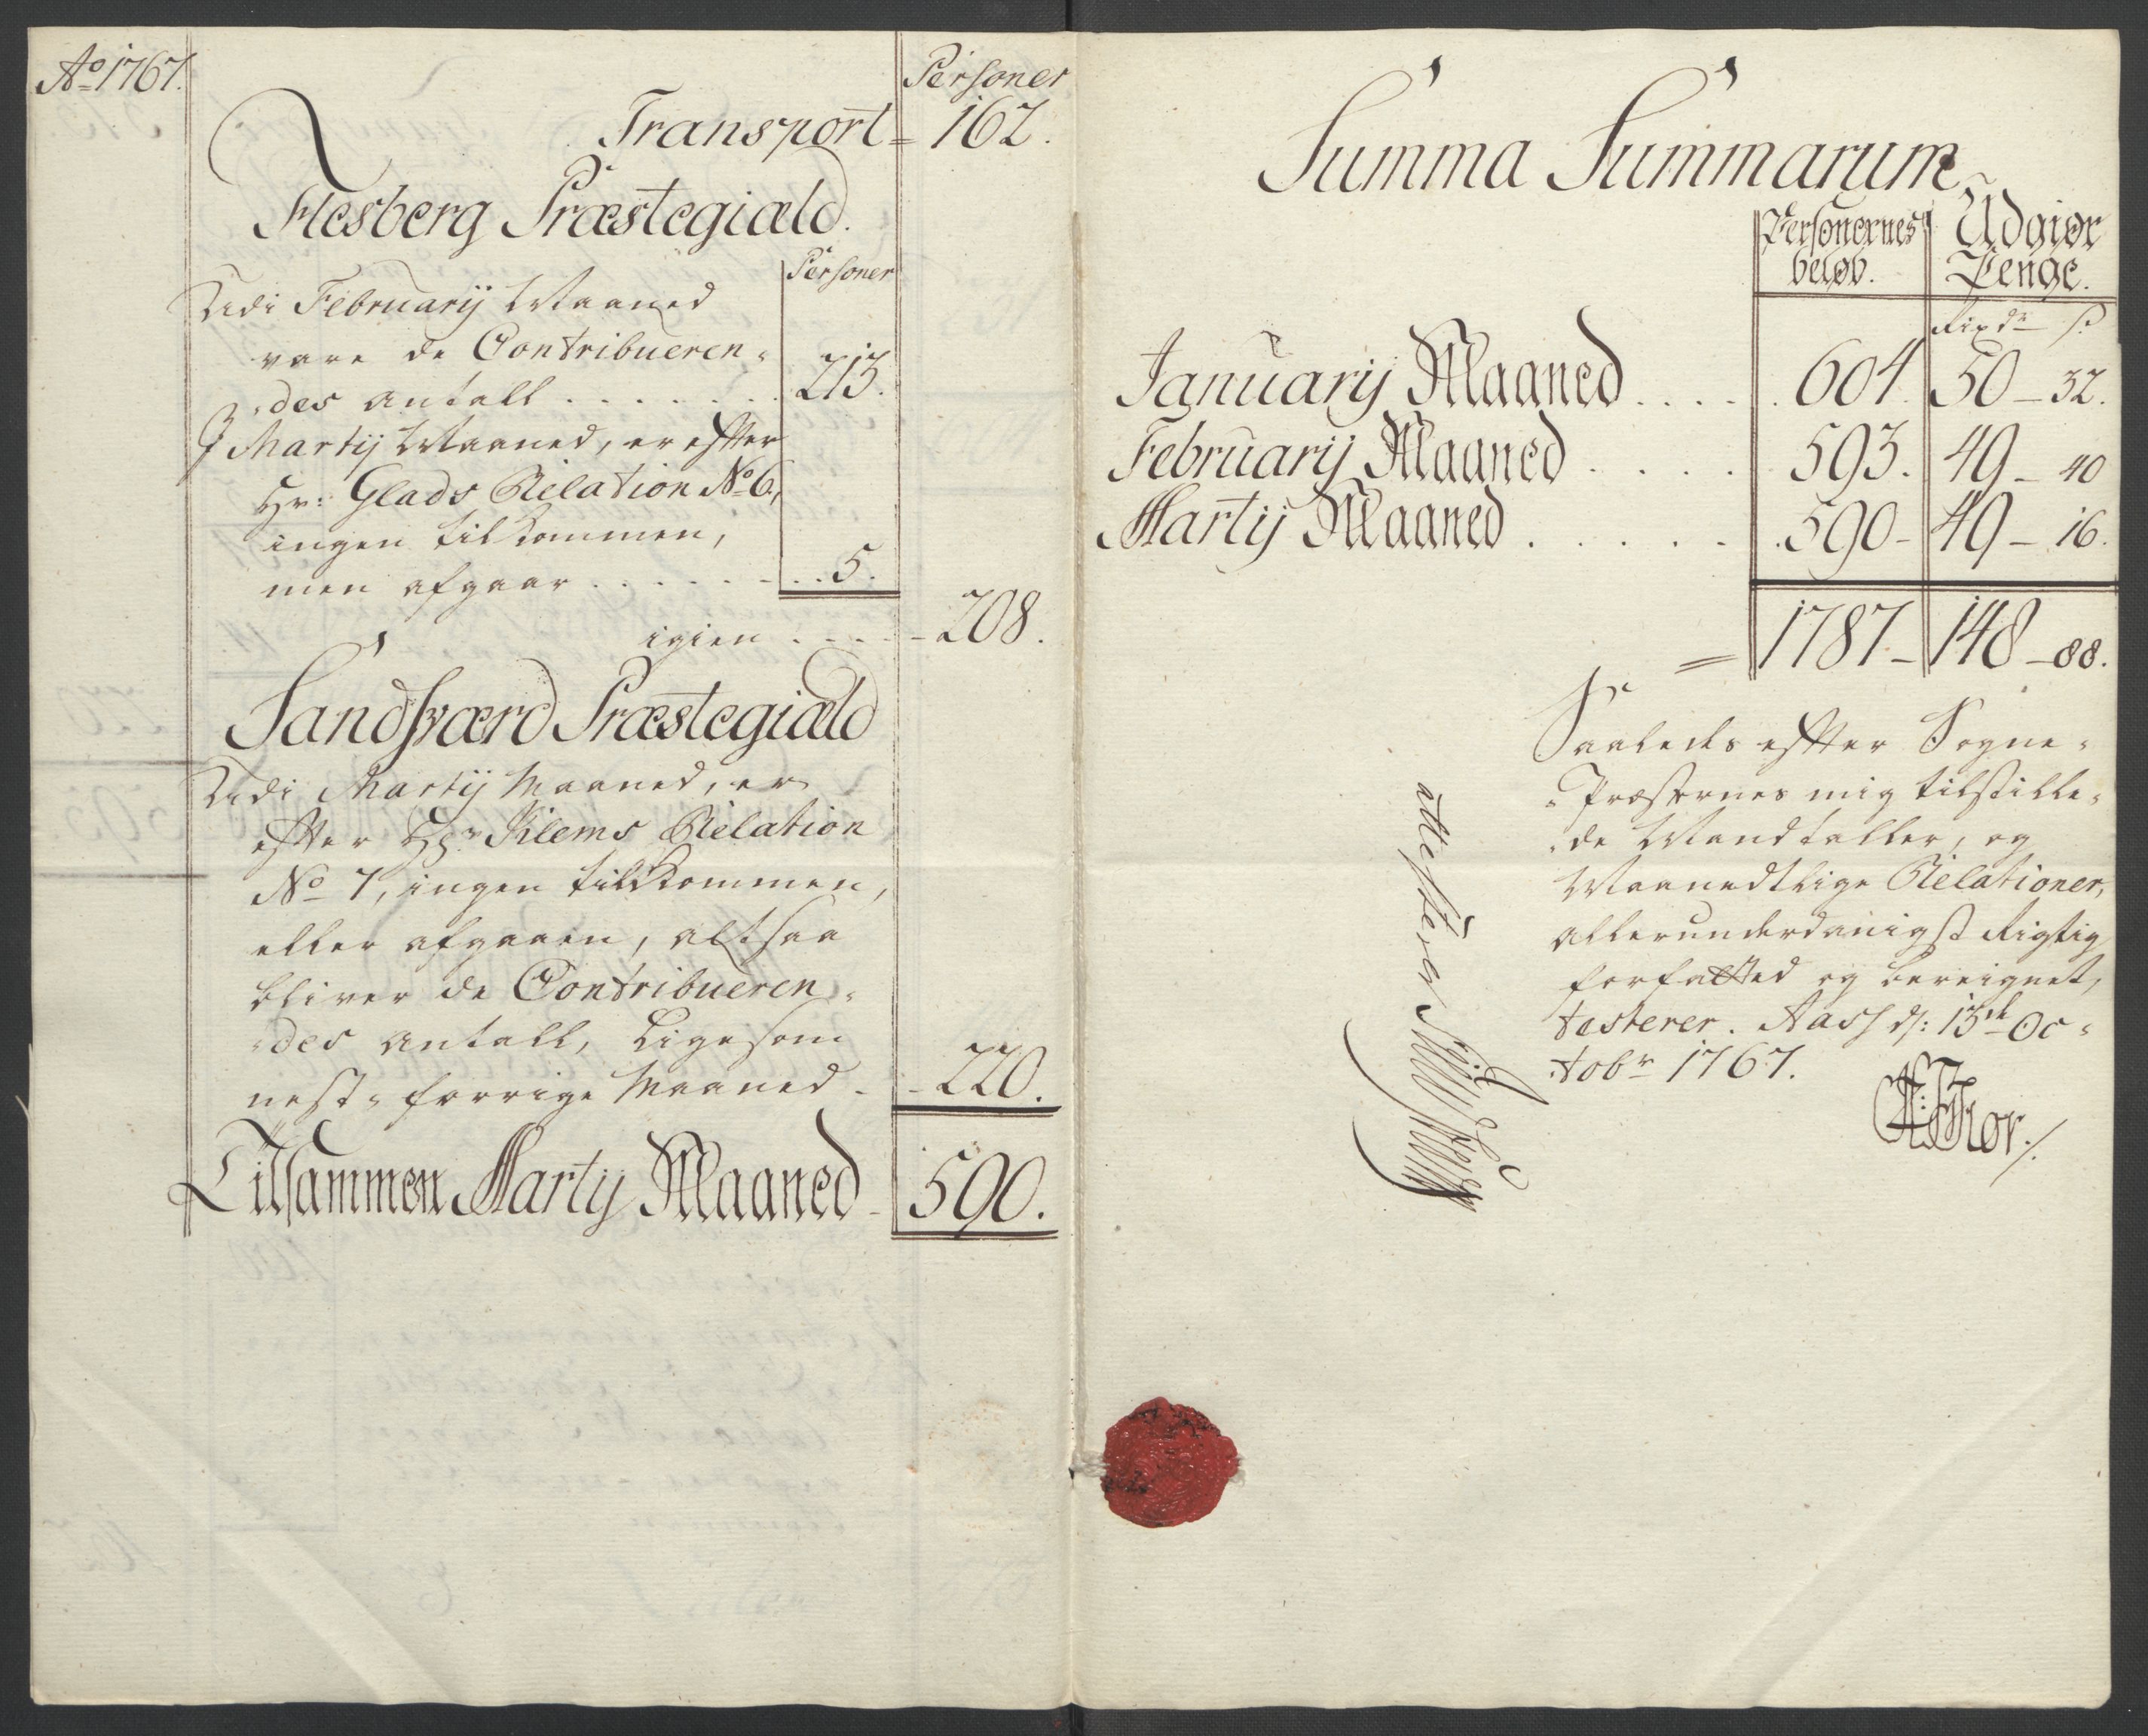 Ao 1767.
Personer
Transport = 162.
Flesberg Præstegiæld.
Personer
Udi Februarij Maaned
vare de Contribueren-
des antall . . . . . . . 213.
I Martij Maaned, er efter
Hr: Glads Relation No 6.,
ingen tilkommen,
men afgaar . . . . . . . 5.
igien . . . . - 208.
Sandsværd Præstegiæld
Udi Martij Maaned, er
efter Hr Klems Relation
No 7, ingen tilkommen,
eller afgaaen, altsaa
bliver de Contribueren-
des antall, ligesom
nest forrige Maaned - - 220.
Tilsammen Martij Maaned - 590.
Summa Summarum
Personernes Udgiør
beløb. Penge.
Rixdr ß
Januarij Maaned . . . . . 604. 50 - 32.
Februarij Maaned . . . . . 593. 49 - 40
Martij Maaned . . . . . 590 - 49 - 16.
= 1787 - 148 - 88.
Saaledes efter Sogne-
Præsternes mig tilstille-
de Mandtaller, og
Maanedtlige Relationer,
allerunderdanigst Rigtig
forfatted og bereignet,
testerer. Aass d: 13de Oc-
tobr 1767.
attesterer